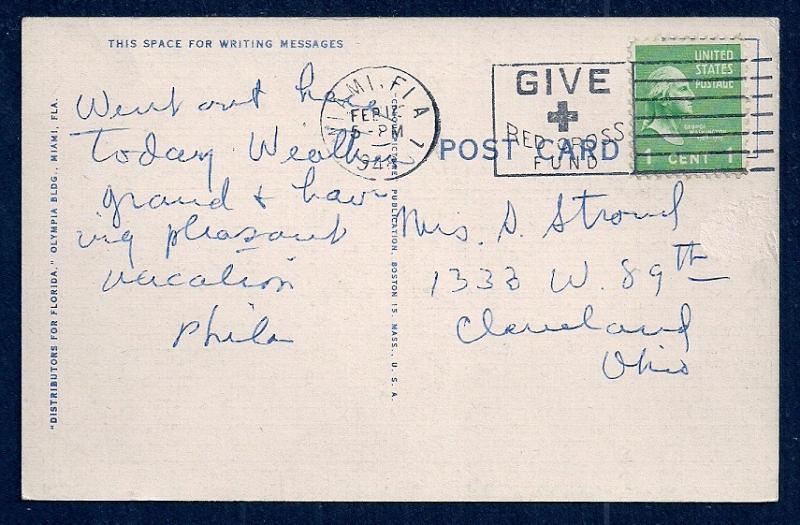 THIS SPACE FOR WRITING MESSAGES
Went out here
today Weather
grand & hav-
ing pleasant
vacation
Phila
"DISTRIBUTORS FOR FLORIDA." OLYMPIA BLDG., MIAMI, FLA.
PUBLICATION, BOSTON 15, MASS., U. S. A.
MIAMI, FLA
FEB
5 - PM
1948
GIVE
RED CROSS
FUND
UNITED
STATES
POSTAGE
GEORGE
WASHINGTON
1 CENT 1
POST CARD
Mrs. D. Stroud
1333 W. 89th
Cleveland
Ohio